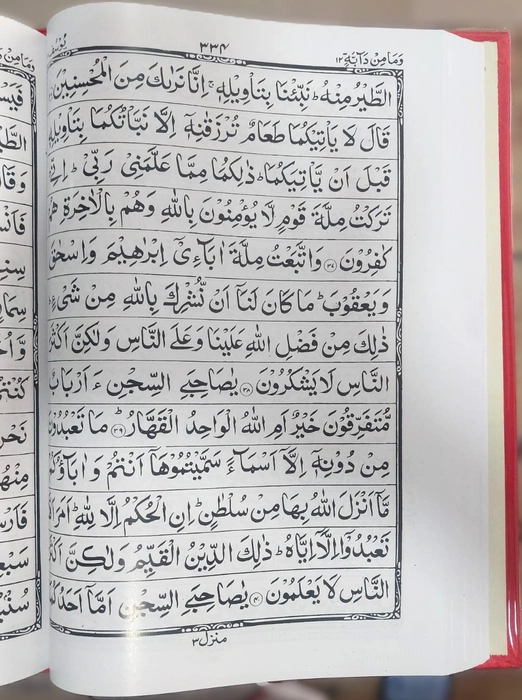 وَمَا مِنْ دَآبَّةٍ ١٢
٣٣٤
الطَّيْرُ مِنْهُ ؕ نَبِّئْنَا بِتَاْوِيْلِهٖ ۚ اِنَّا نَرٰىكَ مِنَ الْمُحْسِنِيْنَ
قَالَ لَا يَاْتِيْكُمَا طَعَامٌ تُرْزَقٰنِهٖۤ اِلَّا نَبَّاْتُكُمَا بِتَاْوِيْلِهٖ
قَبْلَ اَنْ يَّاْتِيَكُمَا ؕ ذٰلِكُمَا مِمَّا عَلَّمَنِيْ رَبِّيْ ؕ اِنِّيْ
تَرَكْتُ مِلَّةَ قَوْمٍ لَّا يُؤْمِنُوْنَ بِاللّٰهِ وَهُمْ بِالْاٰخِرَةِ هُمْ
كٰفِرُوْنَ ﴿٣٧﴾ وَاتَّبَعْتُ مِلَّةَ اٰبَآءِيْۤ اِبْرٰهِيْمَ وَاِسْحٰقَ
وَيَعْقُوْبَ ؕ مَا كَانَ لَنَاۤ اَنْ نُّشْرِكَ بِاللّٰهِ مِنْ شَيْءٍ ؕ
ذٰلِكَ مِنْ فَضْلِ اللّٰهِ عَلَيْنَا وَعَلَى النَّاسِ وَلٰكِنَّ اَكْثَرَ
النَّاسِ لَا يَشْكُرُوْنَ ﴿٣٨﴾ يٰصَاحِبَيِ السِّجْنِ ءَاَرْبَابٌ
مُّتَفَرِّقُوْنَ خَيْرٌ اَمِ اللّٰهُ الْوَاحِدُ الْقَهَّارُ ؕ ﴿٣٩﴾ مَا تَعْبُدُوْنَ
مِنْ دُوْنِهٖۤ اِلَّاۤ اَسْمَآءً سَمَّيْتُمُوْهَاۤ اَنْتُمْ وَاٰبَآؤُكُمْ
مَّاۤ اَنْزَلَ اللّٰهُ بِهَا مِنْ سُلْطٰنٍ ؕ اِنِ الْحُكْمُ اِلَّا لِلّٰهِ ؕ اَمَرَ اَلَّا
تَعْبُدُوْۤا اِلَّاۤ اِيَّاهُ ؕ ذٰلِكَ الدِّيْنُ الْقَيِّمُ وَلٰكِنَّ اَكْثَرَ
النَّاسِ لَا يَعْلَمُوْنَ ﴿٤٠﴾ يٰصَاحِبَيِ السِّجْنِ اَمَّاۤ اَحَدُكُمَا
منزل ٣